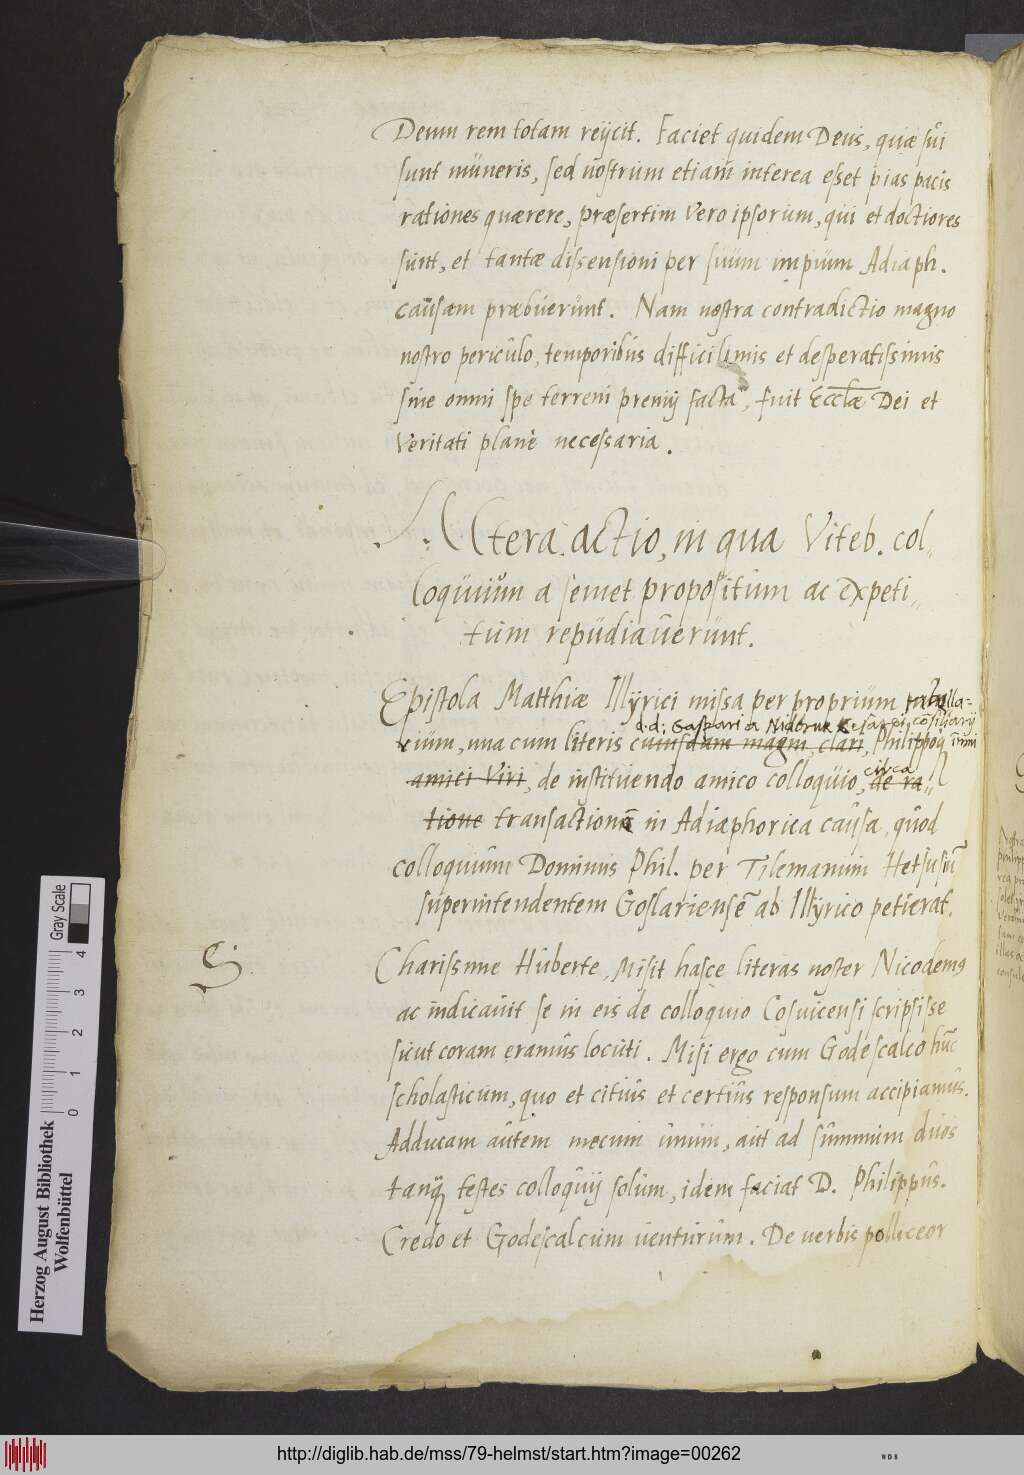 Deum rem totam reijcit. Faciet quidem Deus, quæ sui
sunt muneris, sed nostrum etiam interea esset pias pacis
rationes quærere, præsertim vero ipsorum, qui et doctiores
sunt, et tantæ dissensioni per suum impium Adiaph.
causam præbuerunt. Nam nostra contradictio magno
nostro periculo, temporibus difficilimis et desperatissimis
sine omni spe terreni premij facta, fuit Ecclæ Dei et
Veritati planè necessaria.
Altera actio, in qua Viteb. col-
loquium a semet propositum ac expeti-
tum repudiaverunt.
Epistola Matthiæ Illyrici missa per proprium tabella-
d.d. Gasparis a Nidbruk Cesarei consiliarij
rium, una cum literis cuiusdam magni, clari, Philippoq
amici Viri, de instituendo amico colloquio, circa de ra-
tione transactionē in Adiaphorica causa, quod
colloquium Dominus Phil. per Tilemanum Hethusiū
superintendentem Goslariensē ab Illyrico petierat.
S.
Charissime Huberte, Misit hasce literas noster Nicodemus
ac indicavit se in eis de colloquio Cosvicensi scripsisse
sicut coram eramus locuti. Misi ergo cum Godescalco huc
scholasticum, quo et citius et certius responsum accipiamus.
Adducam autem mecum unum, aut ad summum duos
tanq testes colloquij solum, idem faciat D. Philippus.
Credo et Godescalcum venturum. De verbis polliceor
Herzog August Bibliothek
Wolfenbüttel
Gray Scale
0 1 2 3 4
http://diglib.hab.de/mss/79-helmst/start.htm?image=00262